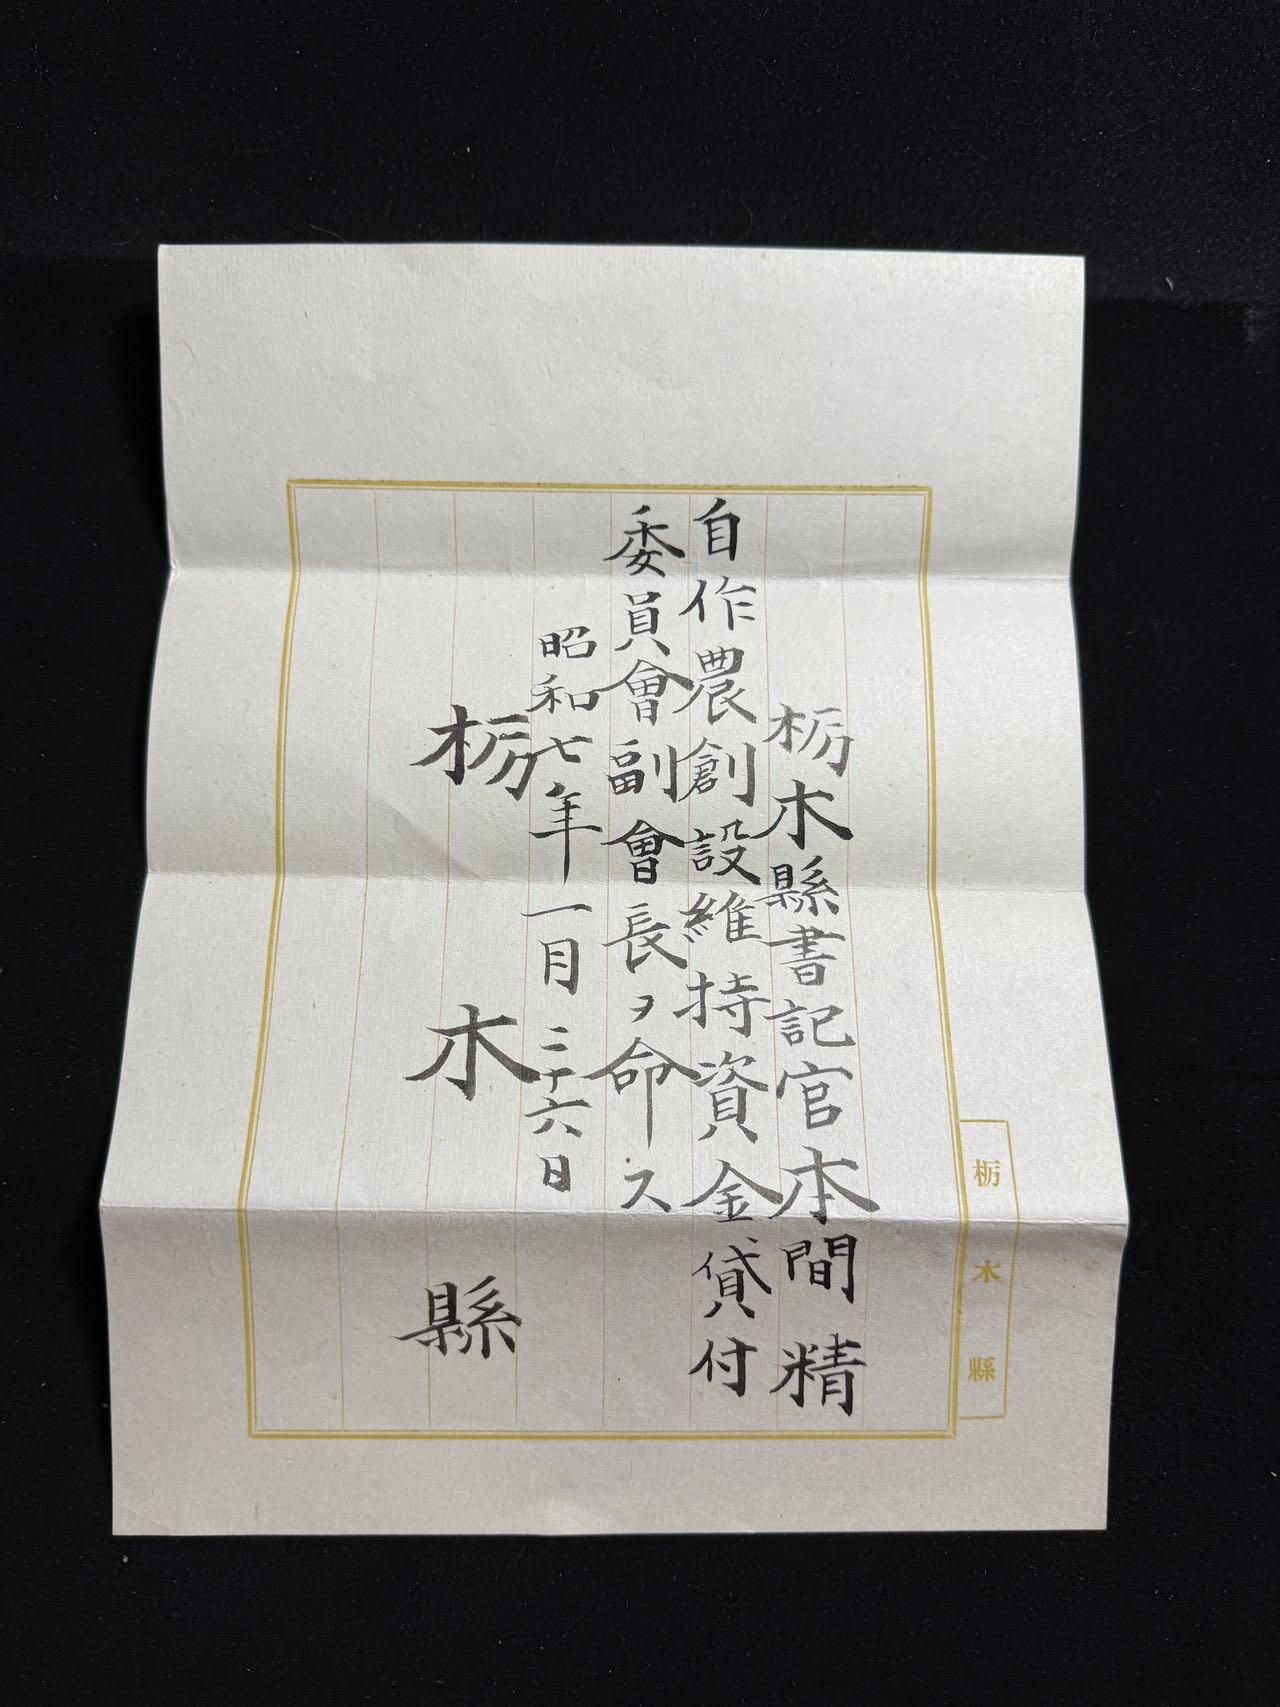 栃木縣書記官本間精
自作農創設維持資金貸付
委員會副會長ヲ命ス
昭和七年一月二十六日
栃木縣
栃木縣